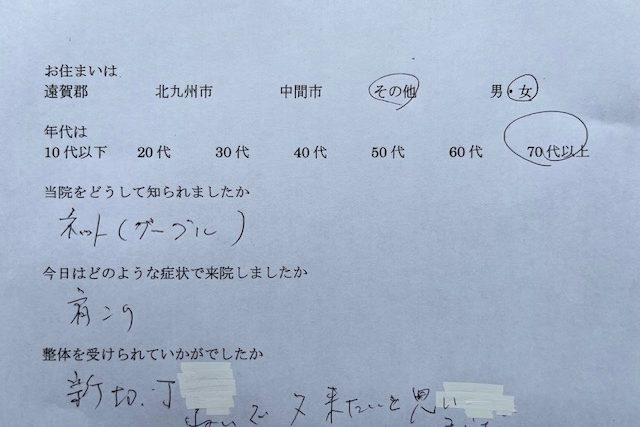 お住まいは
遠賀郡 北九州市 中間市 その他 男・女
年代は
10代以下 20代 30代 40代 50代 60代 70代以上
当院をどうして知られましたか
ネット(グーグル)
今日はどのような症状で来院しましたか
肩こり
整体を受けられていかがでしたか
新切、丁
又来たいと思い